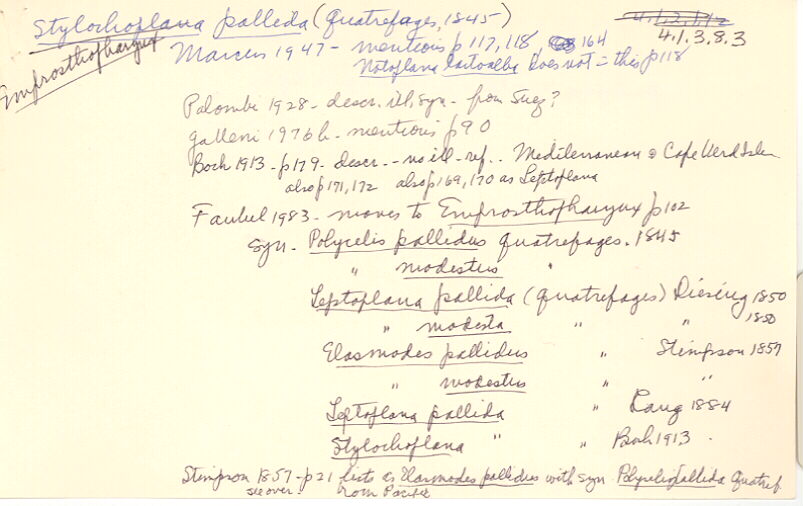 Stylochoplana pallida (Quatrefages, 1845)
4.1.2.1.12
4.1.3.8.3
Emprosthopharynx
Marcus 1947 - mentions p 117, 118 164
Notoplana lactoalba Does not = this p 118
Palombi 1928 - descr. ill, syn - from Suez?
Galleni 1976 b - mentions p 90
Bock 1913 - p179 - descr. - no ill - ref. . Mediterranean & Cape Verd Isles
also p 171, 172 also p 169, 170 as Leptoplana
Faubel 1983 - moves to Emprosthopharynx p 102
syn - Polycelis pallidus Quatrefages. 1845
" modestus "
Leptoplana pallida (Quatrefages) Diesing 1850
" modesta " " 1850
Elasmodes pallidus " Stimpson 1857
" modestus " "
Leptoplana pallida " Lang 1884
Stylochoplana " " Bock 1913 .
Stimpson 1857 - p21 lists as Elasmodes pallidus with syn. Polycelis pallida Quatref.
see over. from Pacific